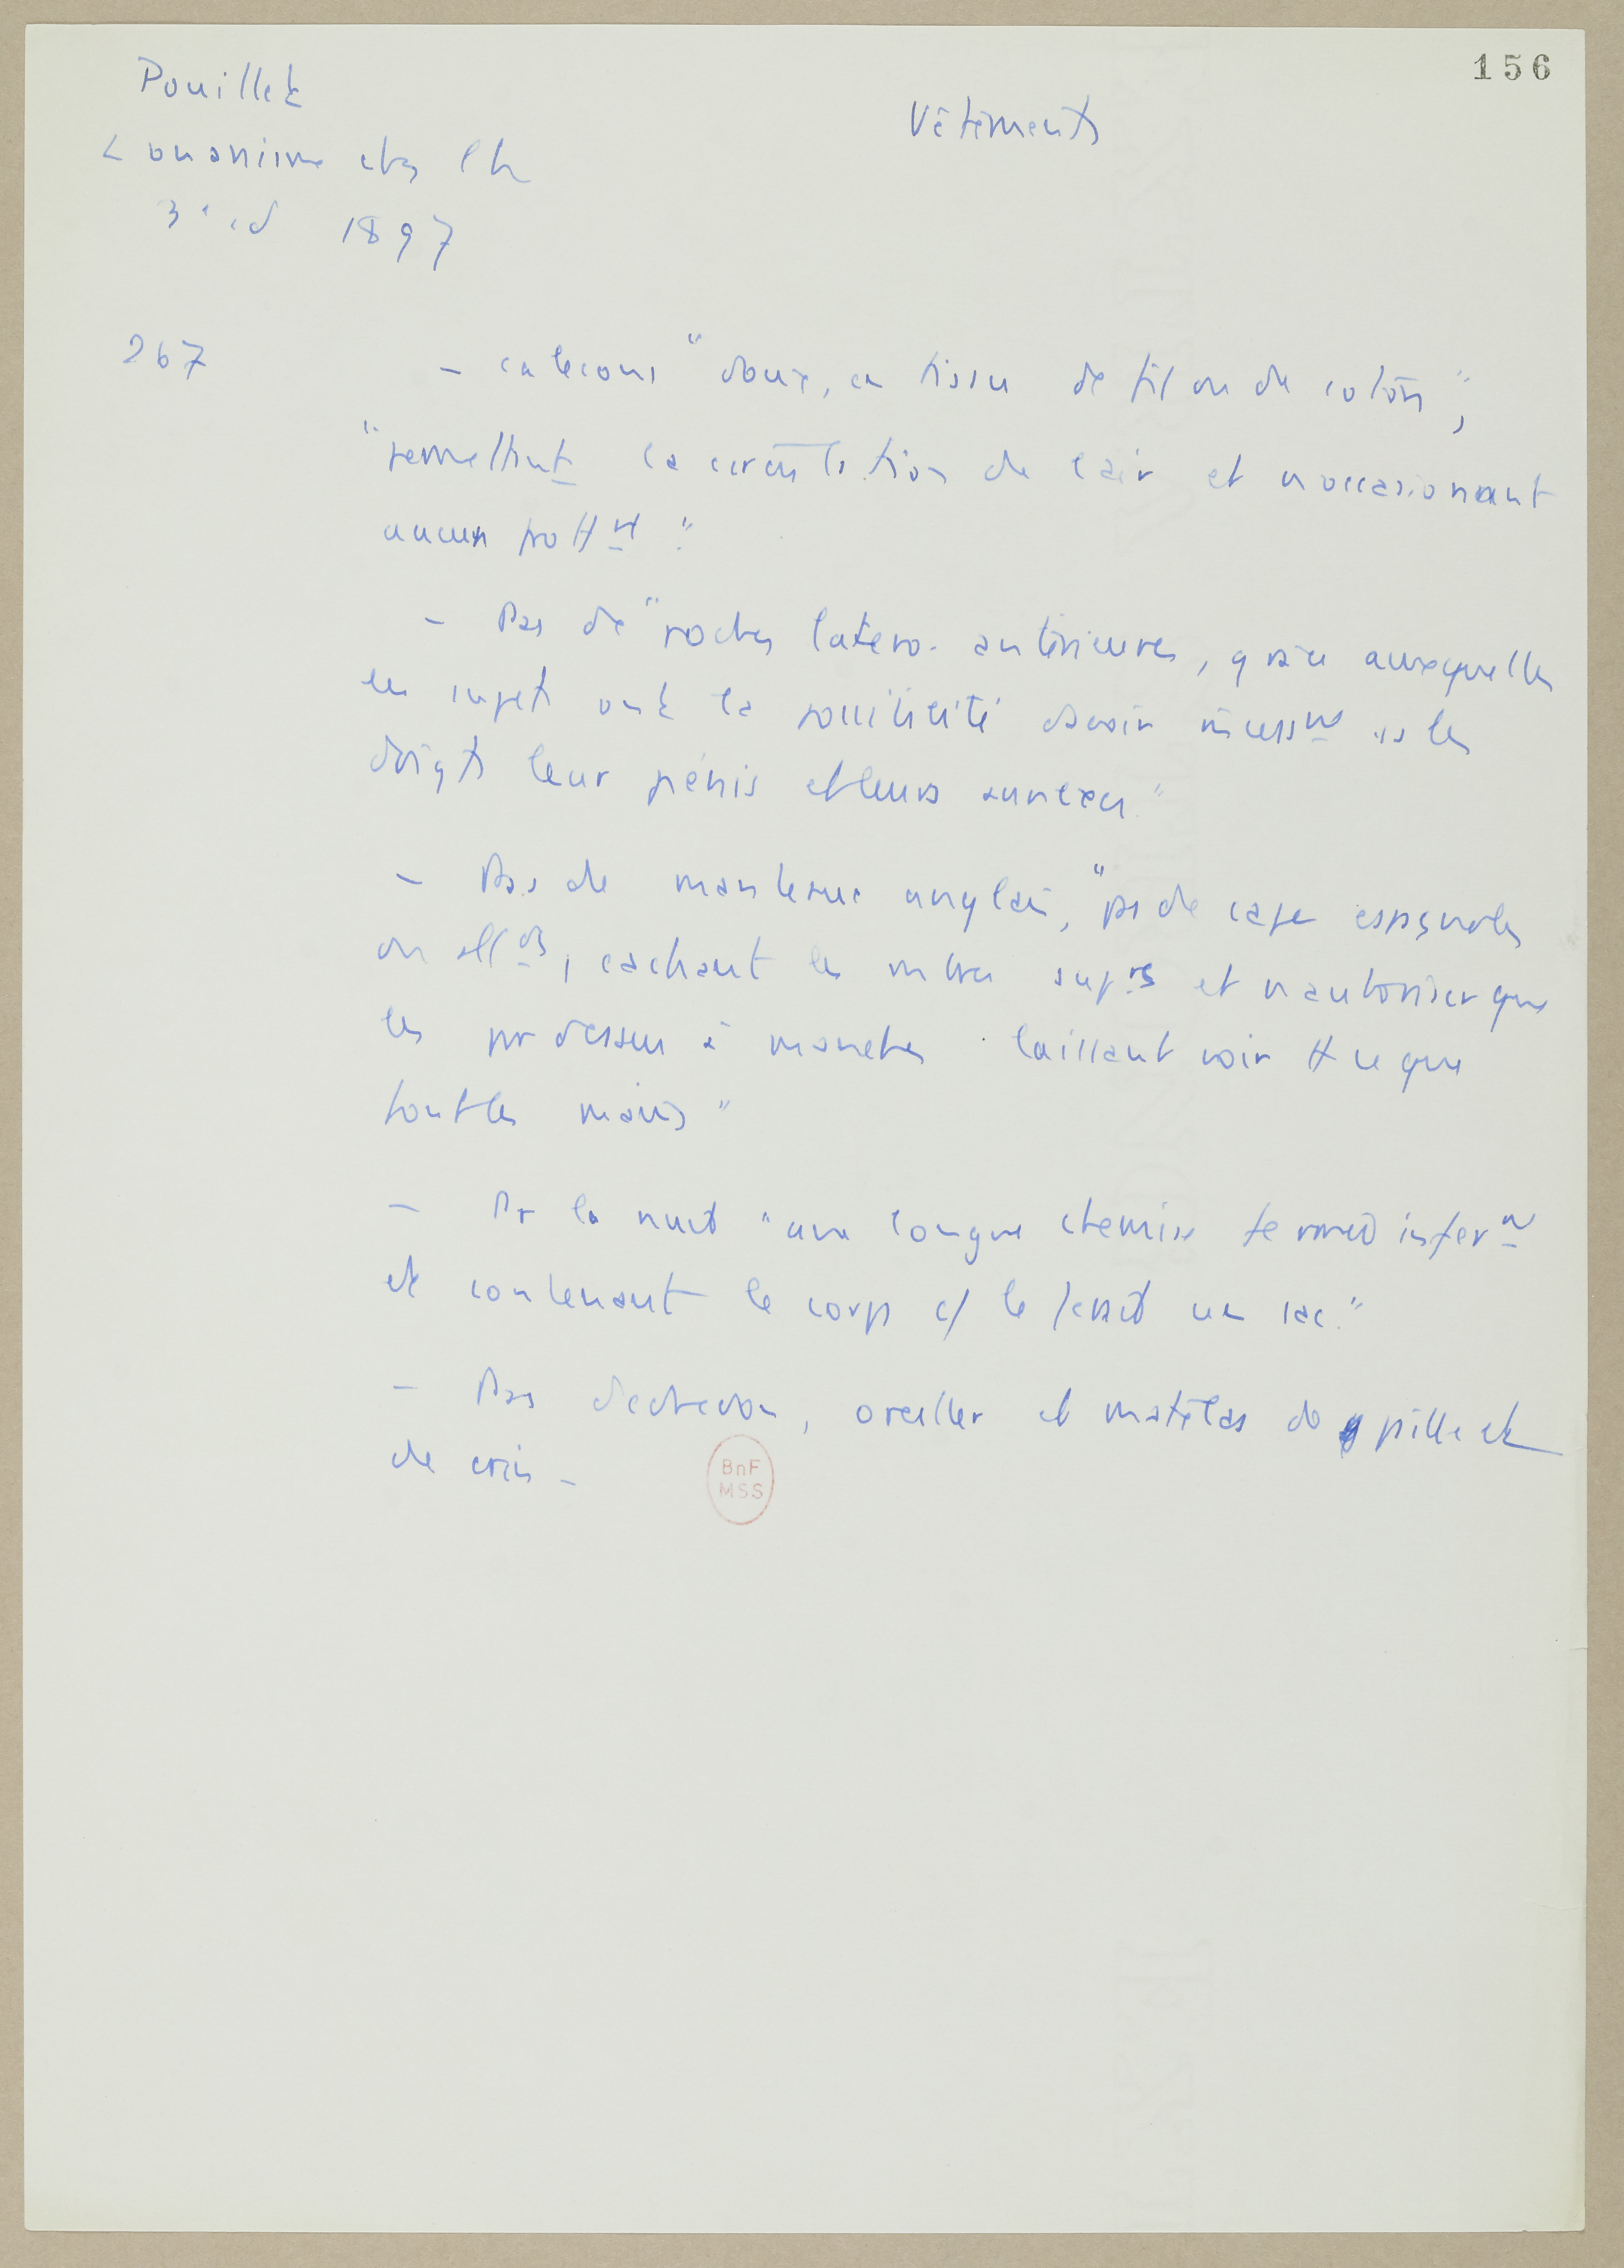 156
Pouillet
Vêtements
L'onanisme chez l'h
3e ed 1897
267
- caleçons "doux, en tissu de fil ou de coton",
"permettant la circulation de l'air et n'occasionant
aucun frottnt".
- Pas de "poches latero-antérieures, grâce auxquelles
les sujets ont la possibilité d'avoir incessnt ss les
doigts leur pénis et leurs annexes."
- Pas de manteaux anglais, "pas de cape espagnoles
ou allds, cachant les mbres suprs et n'autoriser que
les pardessus à manches laissant voir tt ce que
font les mains"
- Pr la nuit "une longue chemise fermée infernt
et contenant le corps c/ le ferait un sac."
- Pas d'edredon, oreiller et matelas de paille et
de crin -
BnF
MSS